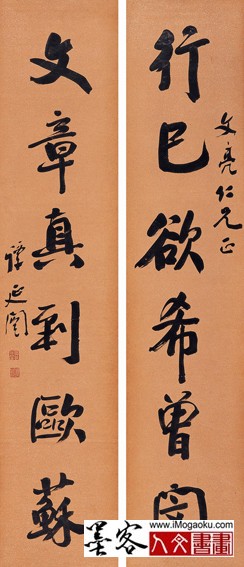 文亮仁兄正
行己欲希曾閔
文章真到歐蘇
譚延闓
墨客
www.iMogaoku.com
人文書畫